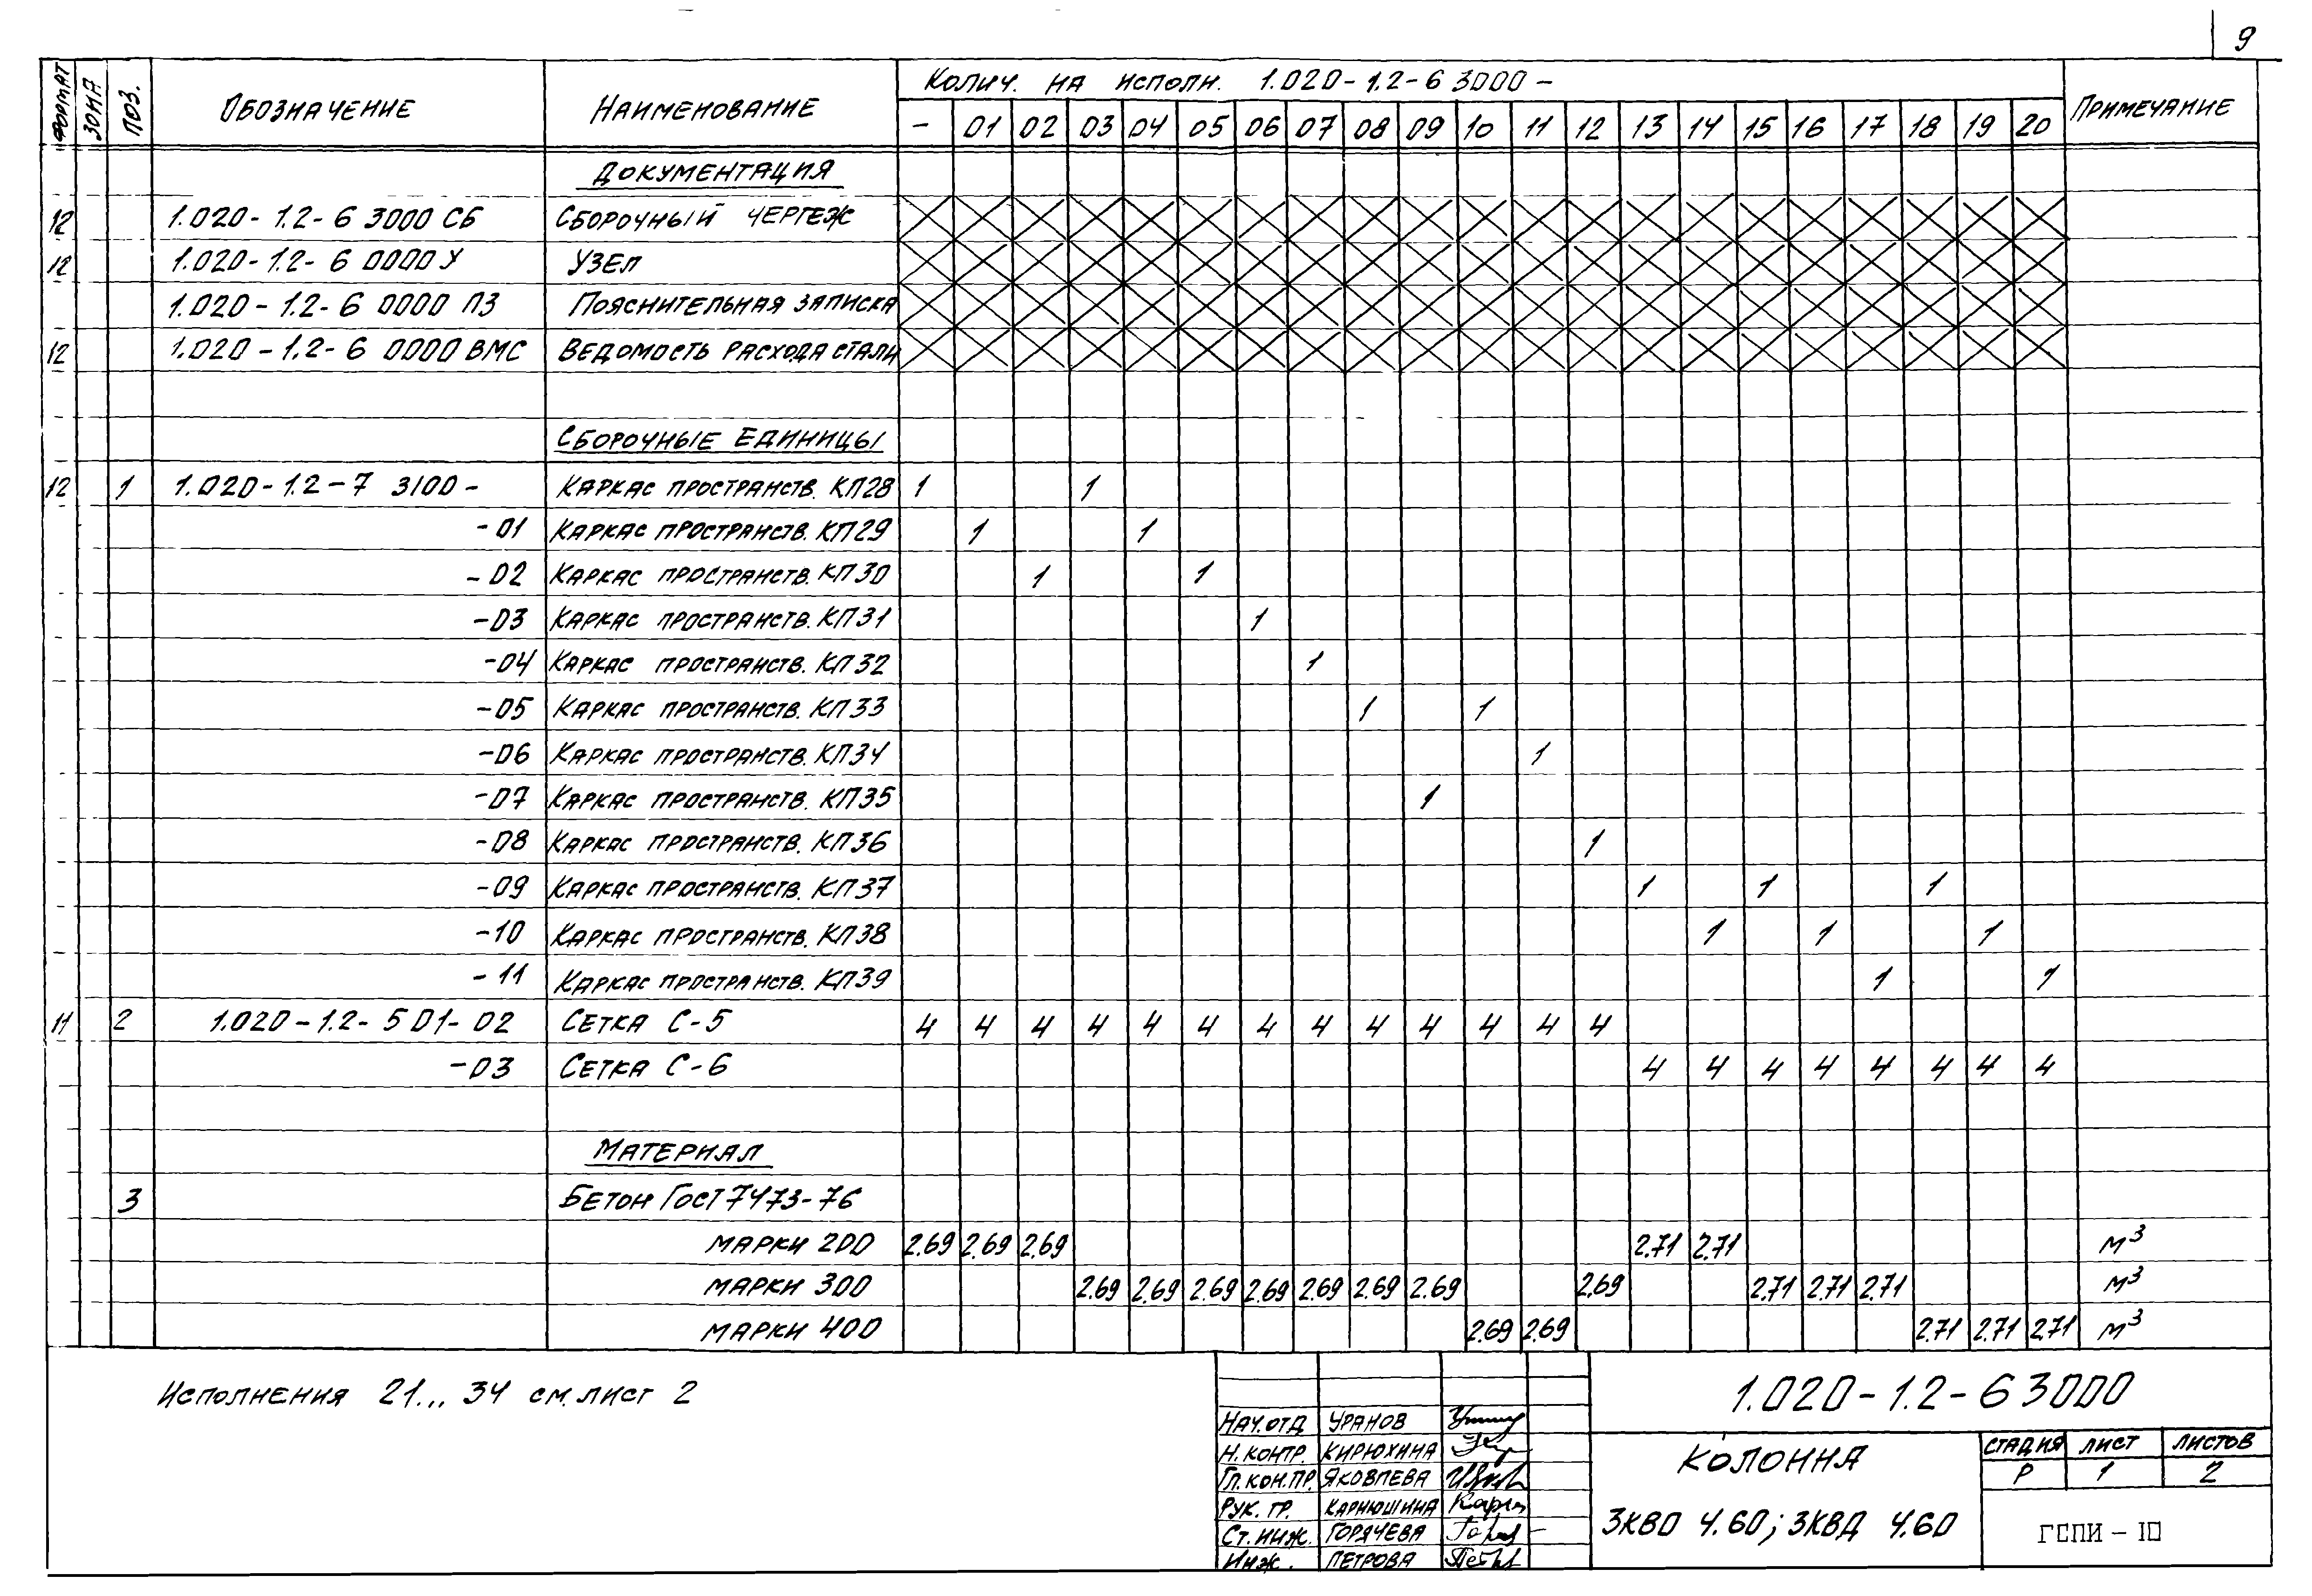 9
ФОРМАТ ЗОНА ПОЗ. ОБОЗНАЧЕНИЕ НАИМЕНОВАНИЕ КОЛИЧ. НА ИСПОЛН. 1.020-1.2-6 3000 - ПРИМЕЧАНИЕ
- 01 02 03 04 05 06 07 08 09 10 11 12 13 14 15 16 17 18 19 20
ДОКУМЕНТАЦИЯ
12 1.020-1.2-6 3000 СБ СБОРОЧНЫЙ ЧЕРТЕЖ
12 1.020-1.2-6 0000 У УЗЕЛ
1.020-1.2-6 0000 ПЗ ПОЯСНИТЕЛЬНАЯ ЗАПИСКА
12 1.020-1.2-6 0000 ВМС ВЕДОМОСТЬ РАСХОДА СТАЛИ
СБОРОЧНЫЕ ЕДИНИЦЫ
12 1 1.020-1.2-7 3100 - КАРКАС ПРОСТРАНСТВ. КП28 1 1
-01 КАРКАС ПРОСТРАНСТВ. КП29 1 1
-02 КАРКАС ПРОСТРАНСТВ. КП30 1 1
-03 КАРКАС ПРОСТРАНСТВ. КП31 1
-04 КАРКАС ПРОСТРАНСТВ. КП32 1
-05 КАРКАС ПРОСТРАНСТВ. КП33 1 1
-06 КАРКАС ПРОСТРАНСТВ. КП34 1
-07 КАРКАС ПРОСТРАНСТВ. КП35 1
-08 КАРКАС ПРОСТРАНСТВ. КП36 1
-09 КАРКАС ПРОСТРАНСТВ. КП37 1 1 1
-10 КАРКАС ПРОСТРАНСТВ. КП38 1 1 1
-11 КАРКАС ПРОСТРАНСТВ. КП39 1 1
11 2 1.020-1.2-5 01-02 СЕТКА С-5 4 4 4 4 4 4 4 4 4 4 4 4 4
-03 СЕТКА С-6 4 4 4 4 4 4 4 4
МАТЕРИАЛ
3 БЕТОН ГОСТ 7473-76
МАРКИ 200 2.69 2.69 2.69 2.71 2.71 М³
МАРКИ 300 2.69 2.69 2.69 2.69 2.69 2.69 2.69 2.69 2.71 2.71 2.71 М³
МАРКИ 400 2.69 2.69 2.71 2.71 2.71 М³
ИСПОЛНЕНИЯ 21... 34 СМ. ЛИСТ 2
1.020-1.2-6 3000
НАЧ. ОТД УРАНОВ
Н. КОНТР. КИРЮХИНА
ГЛ. КОН.ПР. ЯКОВЛЕВА
РУК. ГР. КАРНЮШИНА
СТ. ИНЖ. ГОРЯЧЕВА
ИНЖ. ПЕТРОВА
КОЛОННА
3КВО 4.60; 3КВД 4.60
СТАДИЯ ЛИСТ ЛИСТОВ
Р 1 2
ГСПИ-10